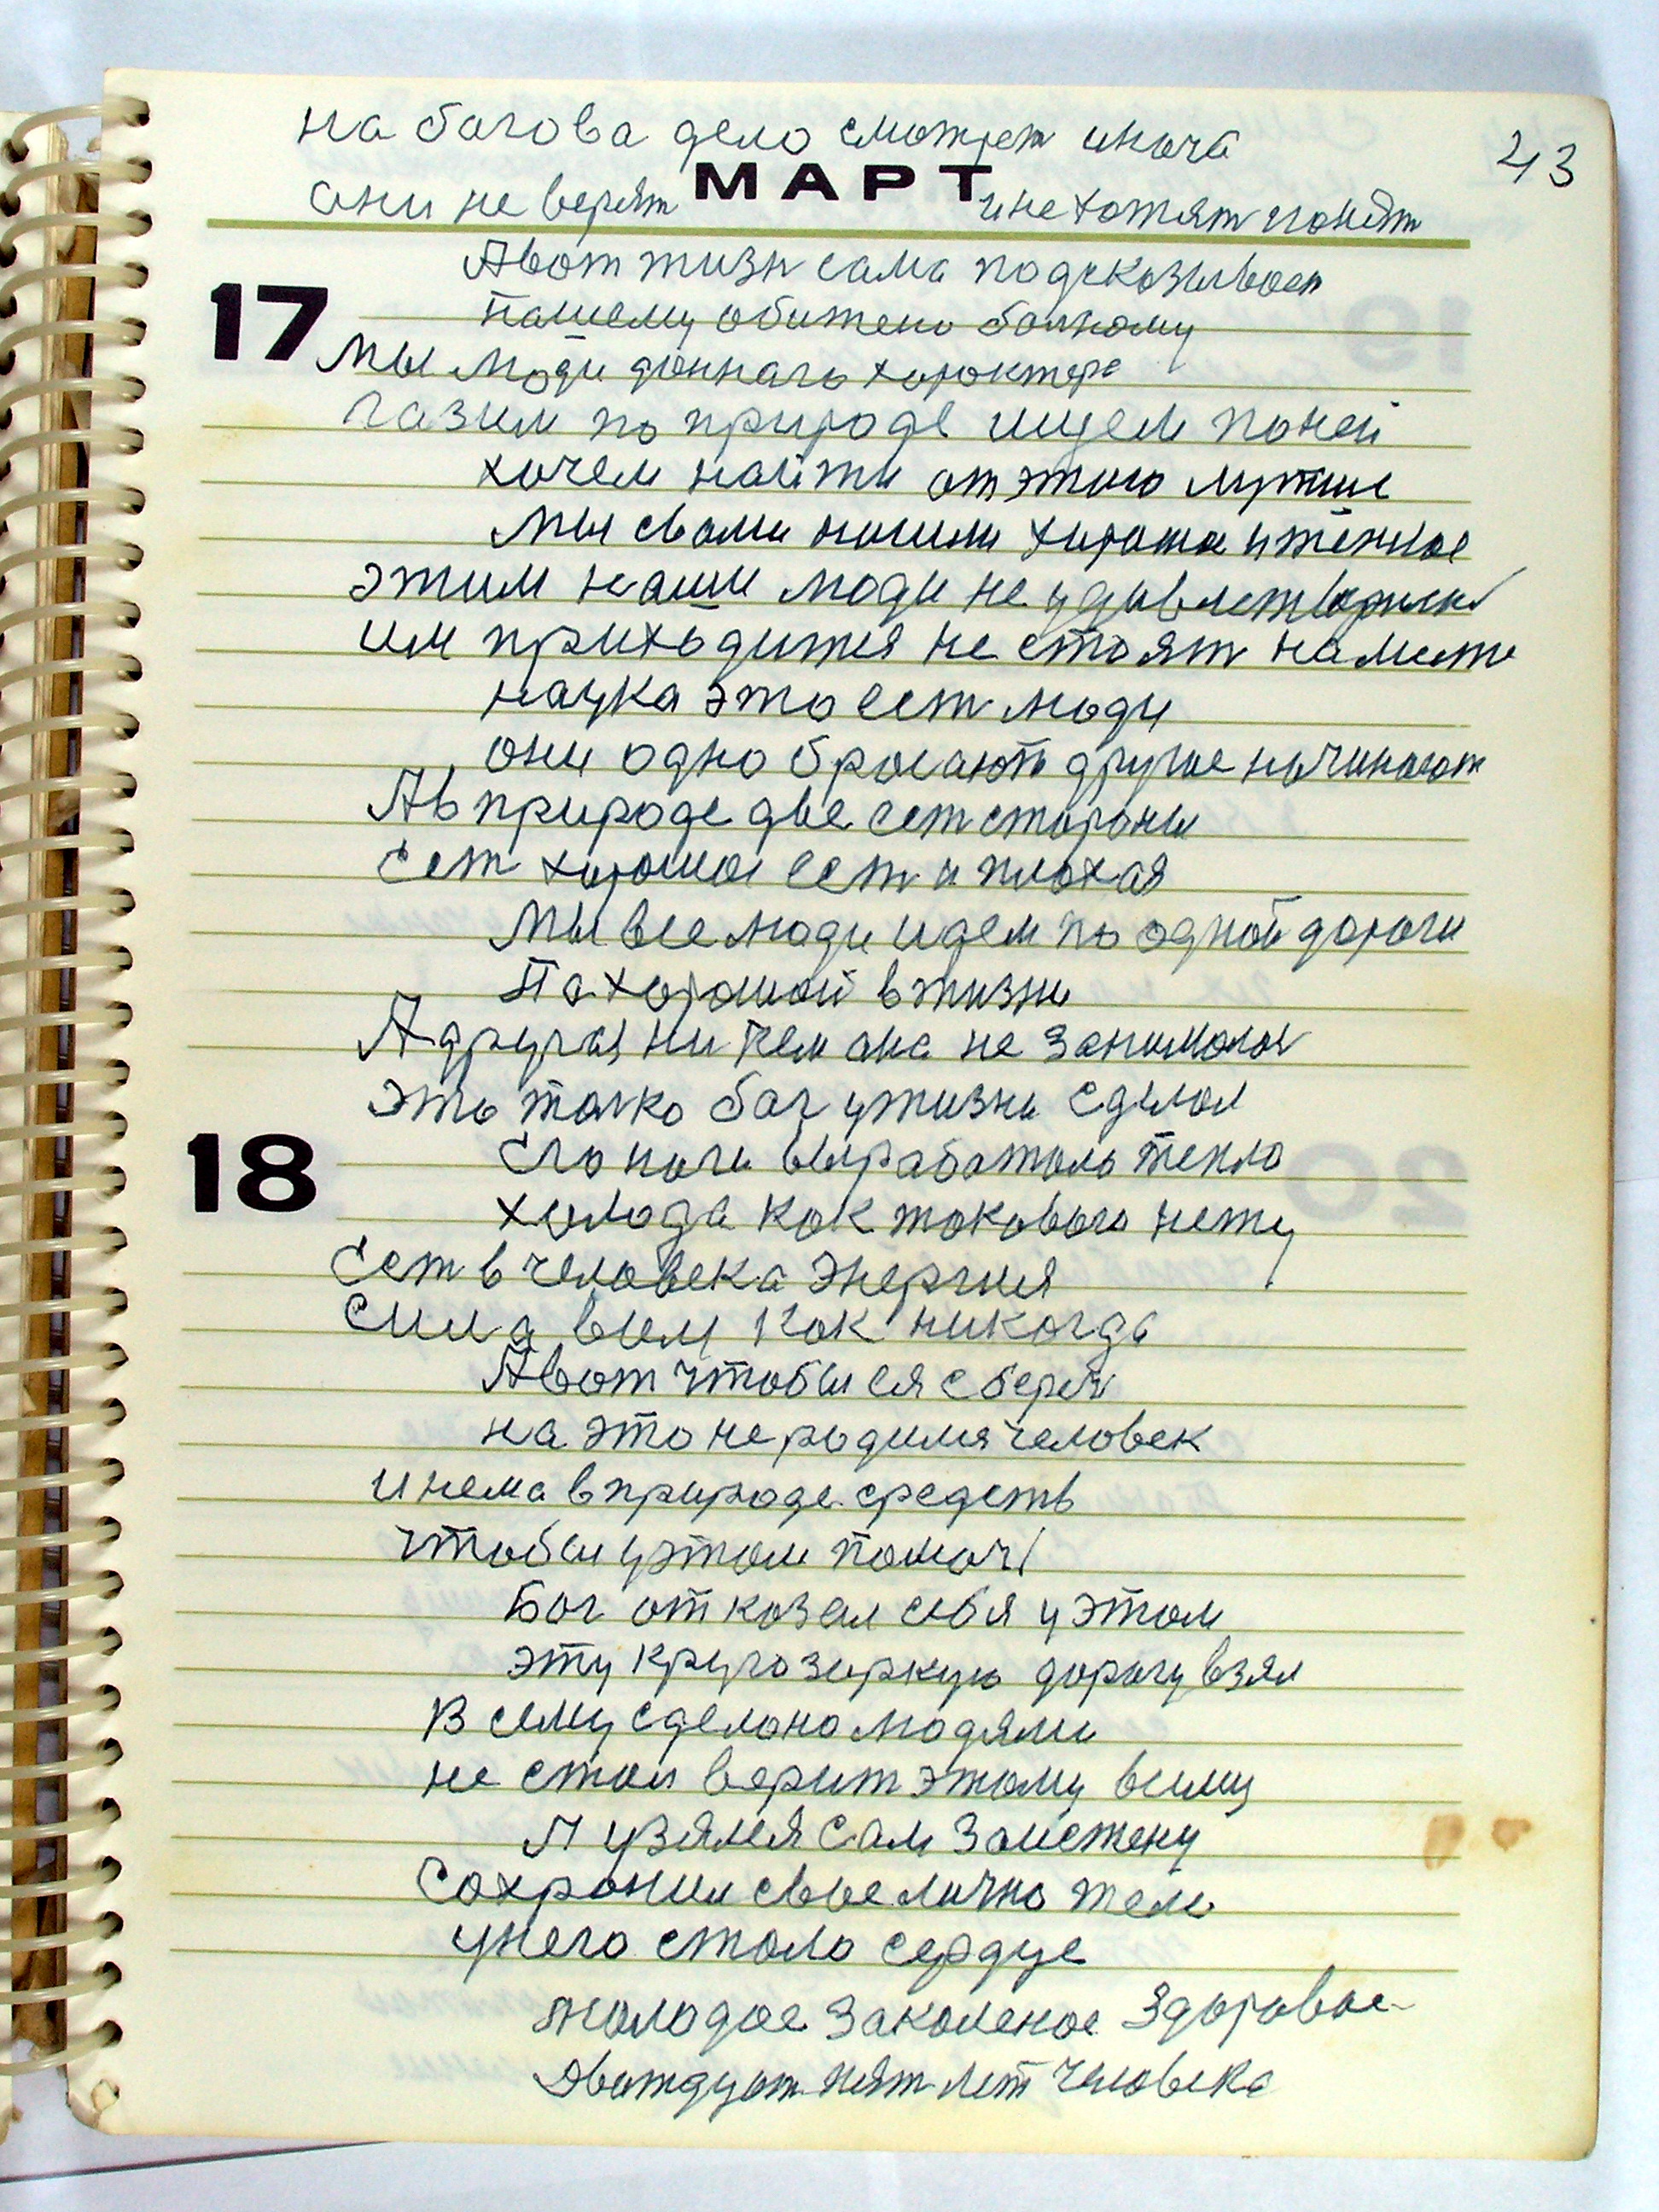 на богова дело смотрят иноче
43
МАРТ
они не верят и не хотят понят
А вот жизн сама подсказивает
17
нашему обижено болному
мы люди данного характера
лазим по природе ищем по ней
хочем найти от этого лутше
мы с вами нашли хорошое и тёплое
этим наши люди не удивлетворилис
им приходится не стоят на месте
наука это ест люди
они одно бросають другое начинают
А в природе две ест стороны
Ест хорошая ест и плохая
Мы все люди идем по одной дороги
Па хорошой в жизни
А другая ни чем она не занималас
это толко бог у жизни сделал
18
Его ноги выработало тепло
холода как токового нету
Ест в человека энергия
Сила в ём как никогда
А вот чтобы ея сбереч
на это не родился человек
и нема в природе средств
чтобы у этом помочь
Бог отказал себя у этом
эту кругозоркую дорогу взял
Всему сделоно людями
не стал верит этому всему
А узялся сам за истену
Сохронил свое лично тело
у него стало сердце
молодое закаленое здоровое
Двадцат пят лет человека